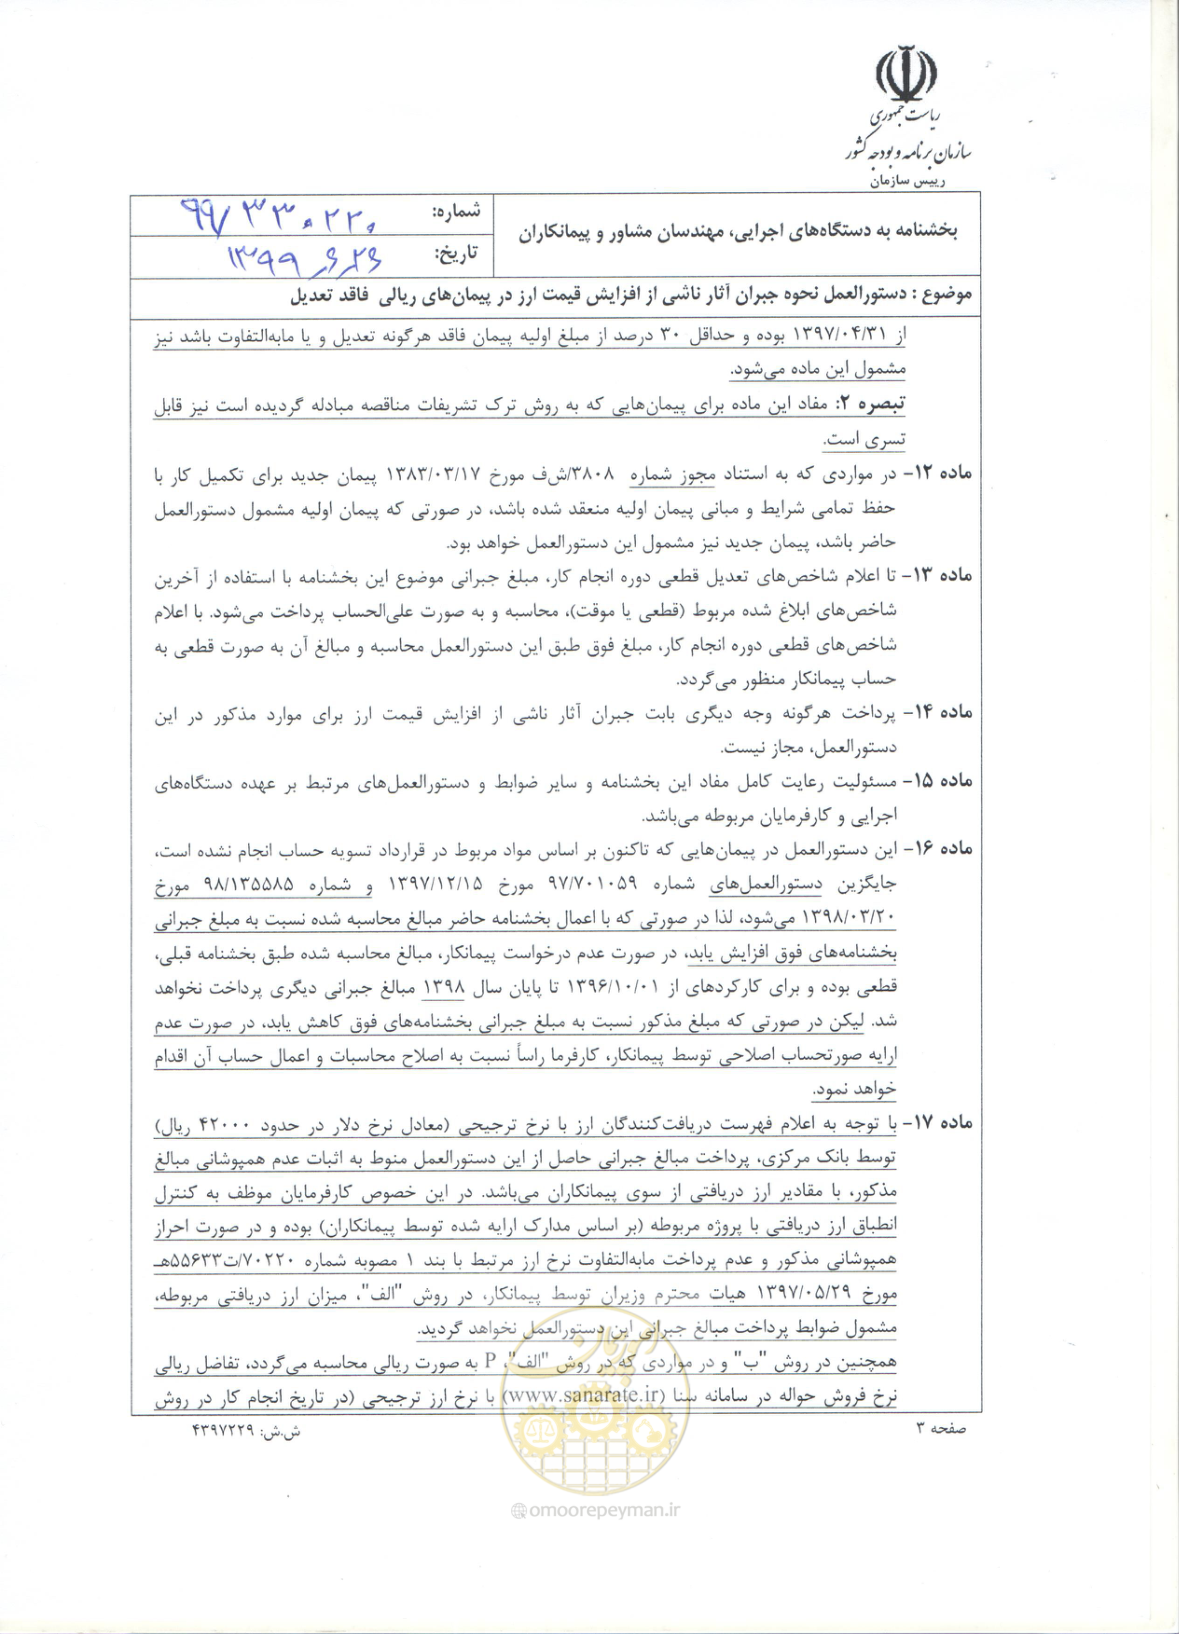 ریاست جمهوری
سازمان برنامه و بودجه کشور
رییس سازمان
بخشنامه به دستگاه‌های اجرایی، مهندسان مشاور و پیمانکاران
شماره: ۹۹/۳۳۰۲۲۰
تاریخ: ۱۳۹۹/۶/۲۶
موضوع : دستورالعمل نحوه جبران آثار ناشی از افزایش قیمت ارز در پیمان‌های ریالی فاقد تعدیل
از ۱۳۹۷/۰۴/۳۱ بوده و حداقل ۳۰ درصد از مبلغ اولیه پیمان فاقد هرگونه تعدیل و یا مابه‌التفاوت باشد نیز
مشمول این ماده می‌شود.
تبصره ۲: مفاد این ماده برای پیمان‌هایی که به روش ترک تشریفات مناقصه مبادله گردیده است نیز قابل
تسری است.
ماده ۱۲- در مواردی که به استناد مجوز شماره ۳۸۰۸/ش‌ف مورخ ۱۳۸۳/۰۳/۱۷ پیمان جدید برای تکمیل کار با
حفظ تمامی شرایط و مبانی پیمان اولیه منعقد شده باشد، در صورتی که پیمان اولیه مشمول دستورالعمل
حاضر باشد، پیمان جدید نیز مشمول این دستورالعمل خواهد بود.
ماده ۱۳- تا اعلام شاخص‌های تعدیل قطعی دوره انجام کار، مبلغ جبرانی موضوع این بخشنامه با استفاده از آخرین
شاخص‌های ابلاغ شده مربوط (قطعی یا موقت)، محاسبه و به صورت علی‌الحساب پرداخت می‌شود. با اعلام
شاخص‌های قطعی دوره انجام کار، مبلغ فوق طبق این دستورالعمل محاسبه و مبالغ آن به صورت قطعی به
حساب پیمانکار منظور می‌گردد.
ماده ۱۴- پرداخت هرگونه وجه دیگری بابت جبران آثار ناشی از افزایش قیمت ارز برای موارد مذکور در این
دستورالعمل، مجاز نیست.
ماده ۱۵- مسئولیت رعایت کامل مفاد این بخشنامه و سایر ضوابط و دستورالعمل‌های مرتبط بر عهده دستگاه‌های
اجرایی و کارفرمایان مربوطه می‌باشد.
ماده ۱۶- این دستورالعمل در پیمان‌هایی که تاکنون بر اساس مواد مربوط در قرارداد تسویه حساب انجام نشده است،
جایگزین دستورالعمل‌های شماره ۹۷/۷۰۱۰۵۹ مورخ ۱۳۹۷/۱۲/۱۵ و شماره ۹۸/۱۳۵۵۸۵ مورخ
۱۳۹۸/۰۳/۲۰ می‌شود، لذا در صورتی که با اعمال بخشنامه حاضر مبالغ محاسبه شده نسبت به مبلغ جبرانی
بخشنامه‌های فوق افزایش یابد، در صورت عدم درخواست پیمانکار، مبالغ محاسبه شده طبق بخشنامه قبلی،
قطعی بوده و برای کارکردهای از ۱۳۹۶/۱۰/۰۱ تا پایان سال ۱۳۹۸ مبالغ جبرانی دیگری پرداخت نخواهد
شد. لیکن در صورتی که مبلغ مذکور نسبت به مبلغ جبرانی بخشنامه‌های فوق کاهش یابد، در صورت عدم
ارایه صورتحساب اصلاحی توسط پیمانکار، کارفرما راساً نسبت به اصلاح محاسبات و اعمال حساب آن اقدام
خواهد نمود.
ماده ۱۷- با توجه به اعلام فهرست دریافت‌کنندگان ارز با نرخ ترجیحی (معادل نرخ دلار در حدود ۴۲۰۰۰ ریال)
توسط بانک مرکزی، پرداخت مبالغ جبرانی حاصل از این دستورالعمل منوط به اثبات عدم همپوشانی مبالغ
مذکور، با مقادیر ارز دریافتی از سوی پیمانکاران می‌باشد. در این خصوص کارفرمایان موظف به کنترل
انطباق ارز دریافتی با پروژه مربوطه (بر اساس مدارک ارایه شده توسط پیمانکاران) بوده و در صورت احراز
همپوشانی مذکور و عدم پرداخت مابه‌التفاوت نرخ ارز مرتبط با بند ۱ مصوبه شماره ۷۰۲۲۰/ت۵۵۶۳۳هـ
مورخ ۱۳۹۷/۰۵/۲۹ هیات محترم وزیران توسط پیمانکار، در روش "الف"، میزان ارز دریافتی مربوطه،
مشمول ضوابط پرداخت مبالغ جبرانی این دستورالعمل نخواهد گردید.
همچنین در روش "ب" و در مواردی که در روش "الف"، P به صورت ریالی محاسبه می‌گردد، تفاضل ریالی
نرخ فروش حواله در سامانه سنا (www.sanarate.ir) با نرخ ارز ترجیحی (در تاریخ انجام کار در روش
صفحه ۳
ش.ش: ۴۳۹۷۲۲۹
امور پیمان
omoorepeyman.ir